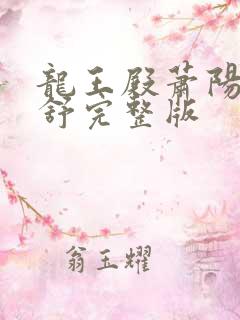 龍王殿蕭陽
舒完整版
翁玉耀